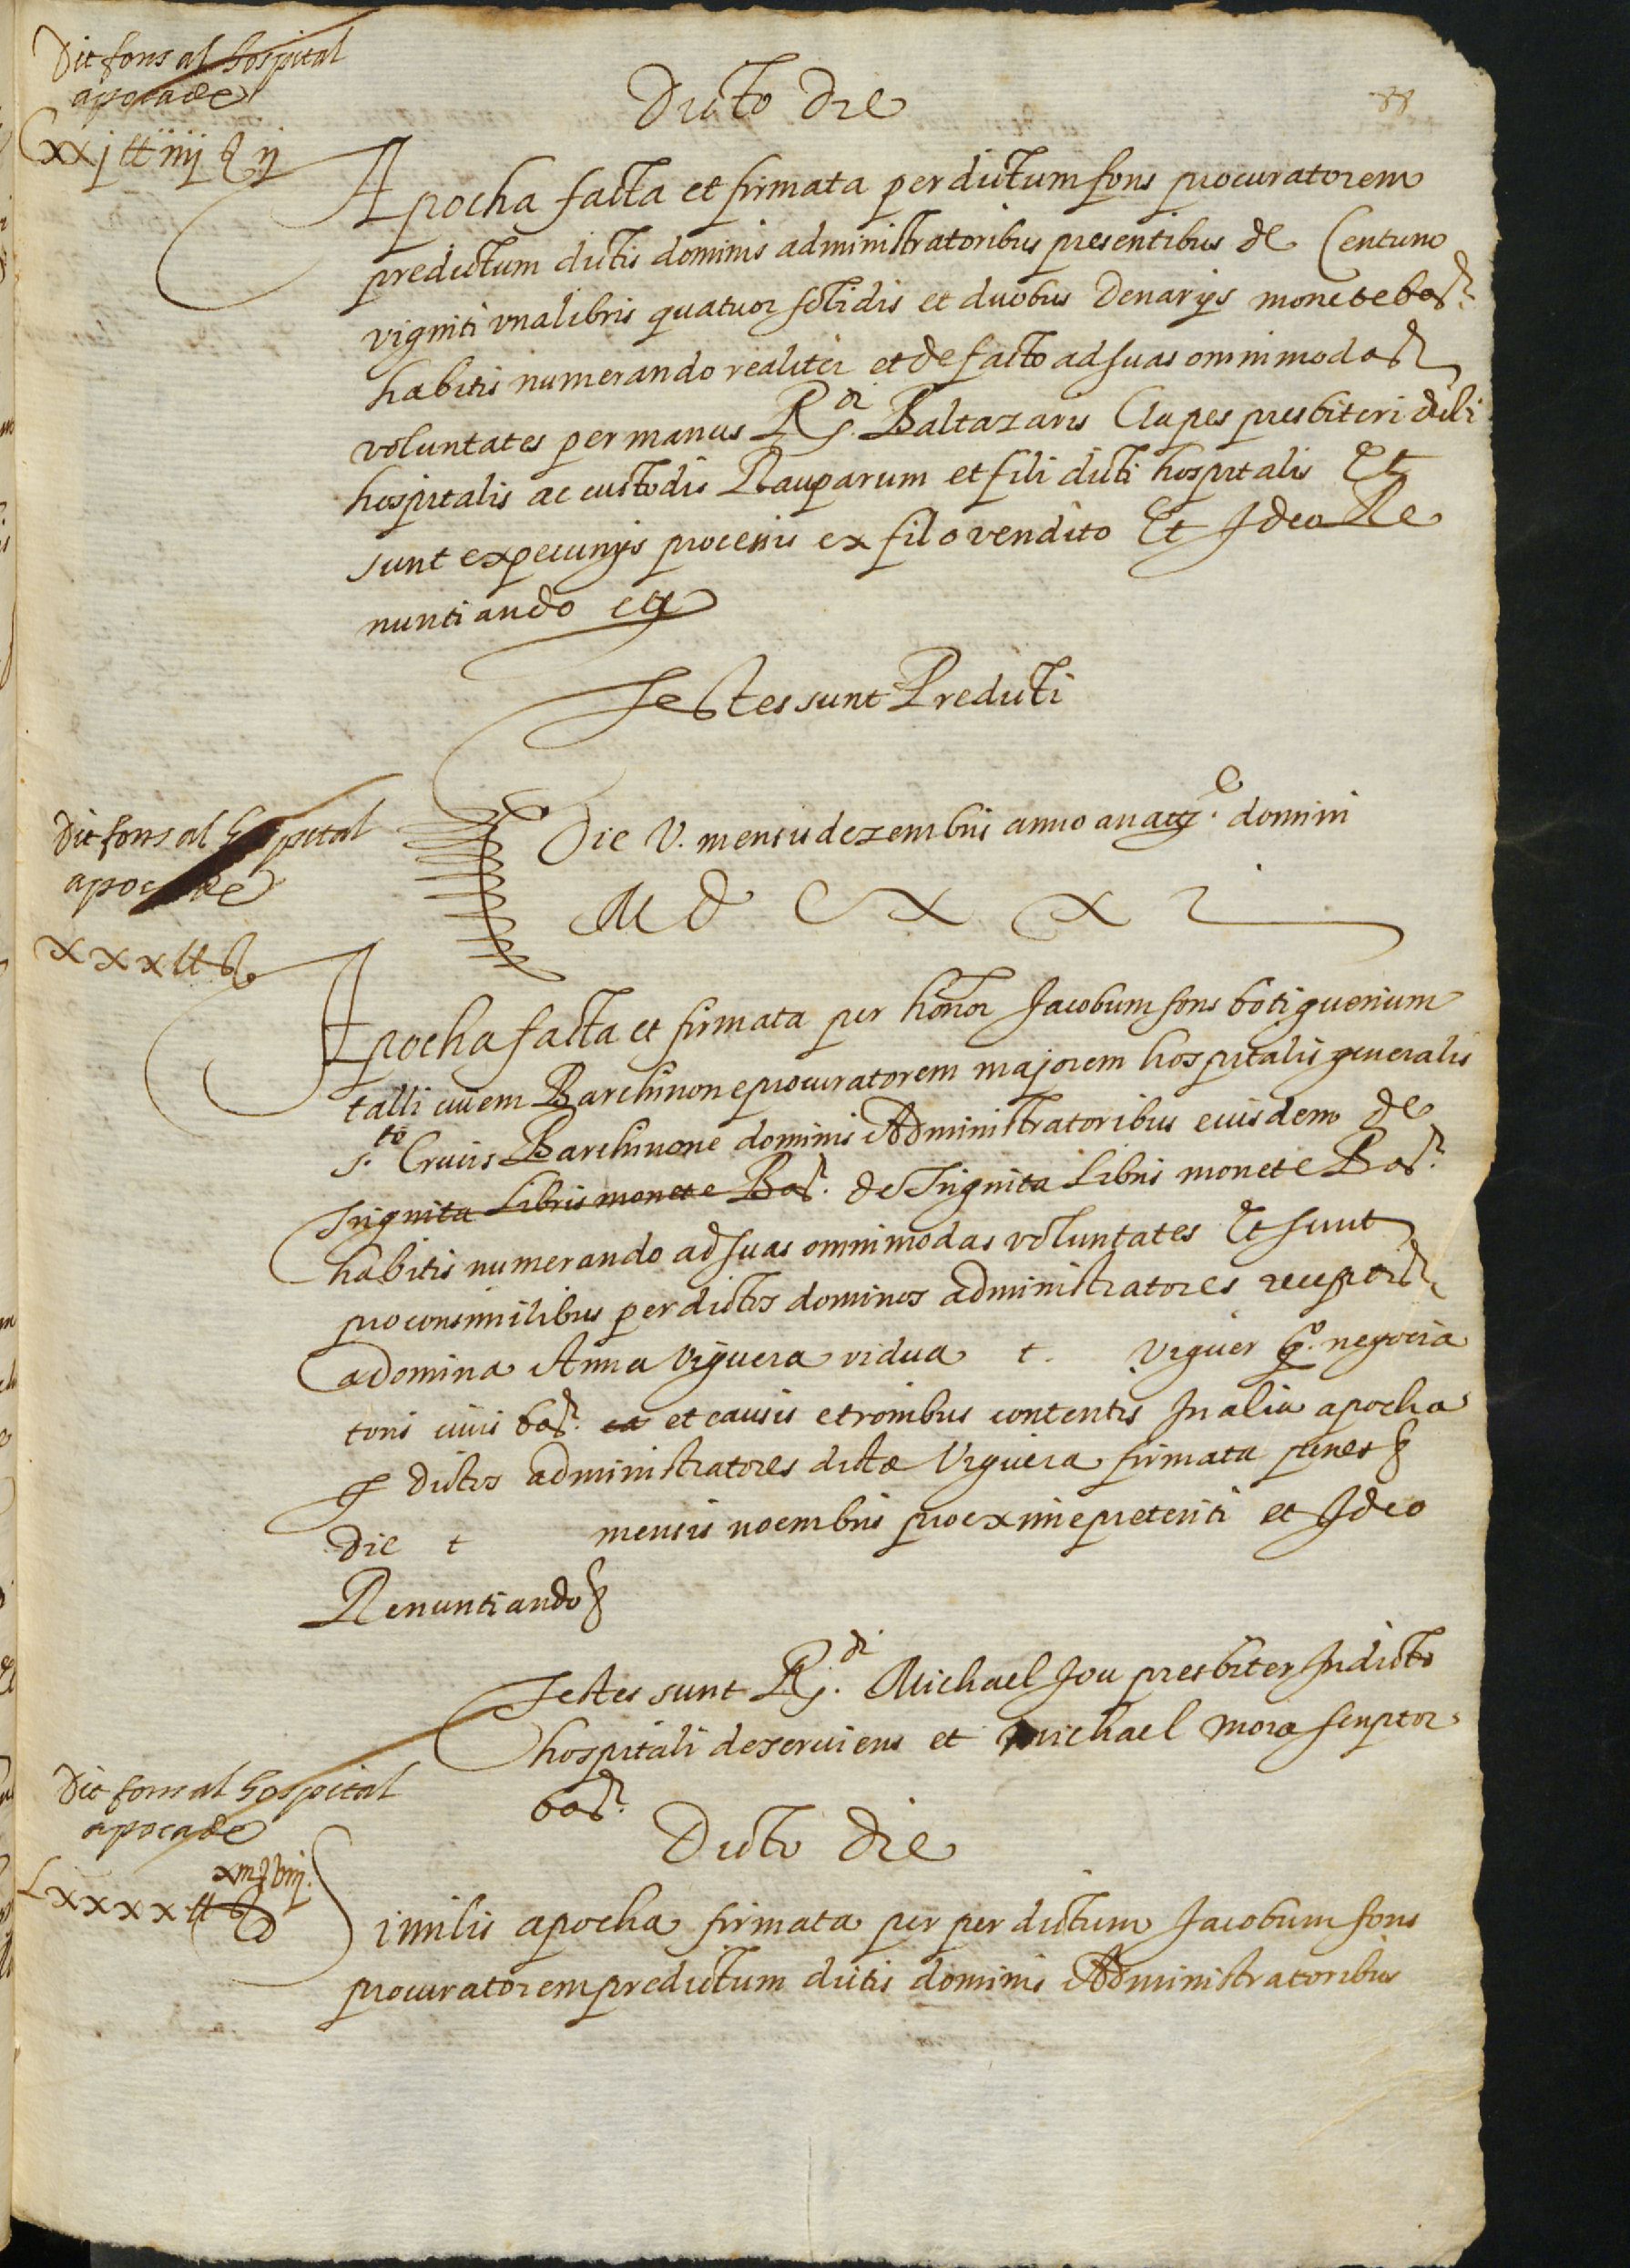 Dit fons al hospital
apoca de
Cxxj ll iiij ẜ ij
Dicto die
88
Apocha facta et firmata per dictum fons procuratorem
predictum dictis dominis administratoribus presentibus de Centum
viginti vna libris quatuor solidis et duobus denarijs monete bar.
habitis numerando realiter et de facto ad suas omnimodas
voluntates per manus R.di Baltazaris Clapes presbiteri dicti
hospitalis ac custodis Rauparum et fili dicti hospitalis Et
sunt ex pecunijs processis ex filo vendito Et Ideo Re
nuntiando etc
Testes sunt Predicti
Dit fons al hospital
apoca de
xxx ll ẜ
Die V. mensis dezembris anno a nat.e domini
M D C x x i
Apocha facta et firmata per honor Jacobum fons botiguerium
talli ciuem Barchinone procuratorem majorem hospitalis generalis
s.te Crucis Barchinone dominis Administratoribus eiusdem de
Triginta Libris monete Bar. de Triginta Libris monete Bar.
habitis numerando ad suas omnimodas voluntates Et sunt
pro consimilibus per dictos dominos administratores receptis
a domina Anna Viguera vidua t. Viguer q.o negocia
toris ciuis bar. ea et causis et ronibus contentis In alia apocha
per dictos administratores dictæ Viguera firmata penes etc
die t mensis noembris proxime preteriti et Ideo
Renuntiando etc
Testes sunt R.di Michael Jou presbiter In dicto
hospitali deseruiens et Michael mora scriptor
bar.
Dit fons al hospital
apoca de
Lxxxx ll ẜ
xiii ẜ viij.
Dicto die
Similis apocha firmata per per dictum Jacobum fons
procuratorem predictum dictis dominis Administratoribus